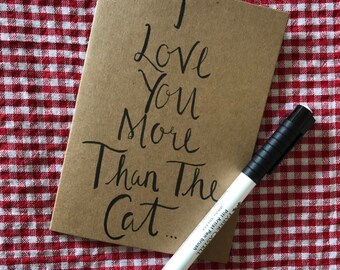 I
Love
You
More
Than The
Cat...